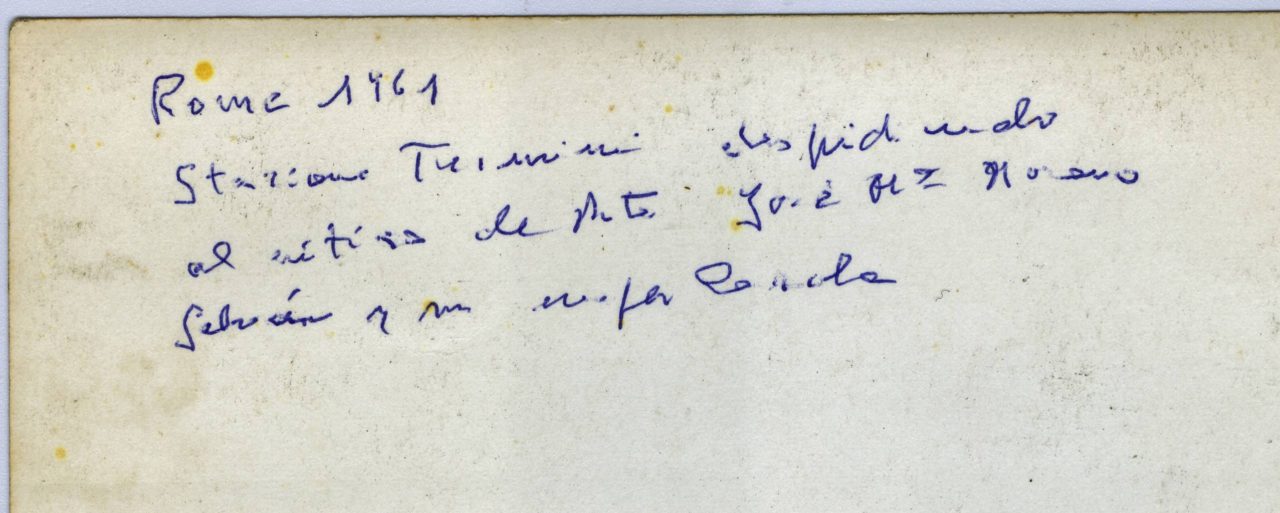 Roma 1961
Stazione Termini despidiendo
al crítico de Arte José Mª Moreno
Galván y su mujer Carola